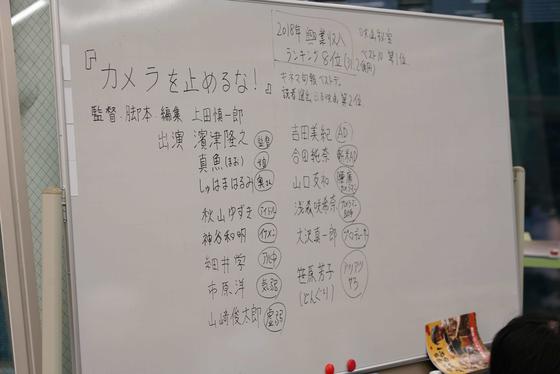 2018年 興業収入
ランキング8位(31.2億円)
映画秘宝
ベスト10 第1位
キネマ旬報 ベストテン
読者選出 日本映画 第2位
『カメラを止めるな!』
監督・脚本・編集 上田慎一郎
出演 濱津隆之 監督
真魚(まお) 娘
しゅはまはるみ 奥さん
秋山ゆずき アイドル
神谷和明 イケメン
細井学 アル中
市原洋 気弱
山﨑俊太郎 虚弱
吉田美紀 AD
合田純奈 新米AD
山口友和
浅森咲希奈 カメラマン助手
大沢真一郎 プロデューサー
笹原芳子
(どんぐり)